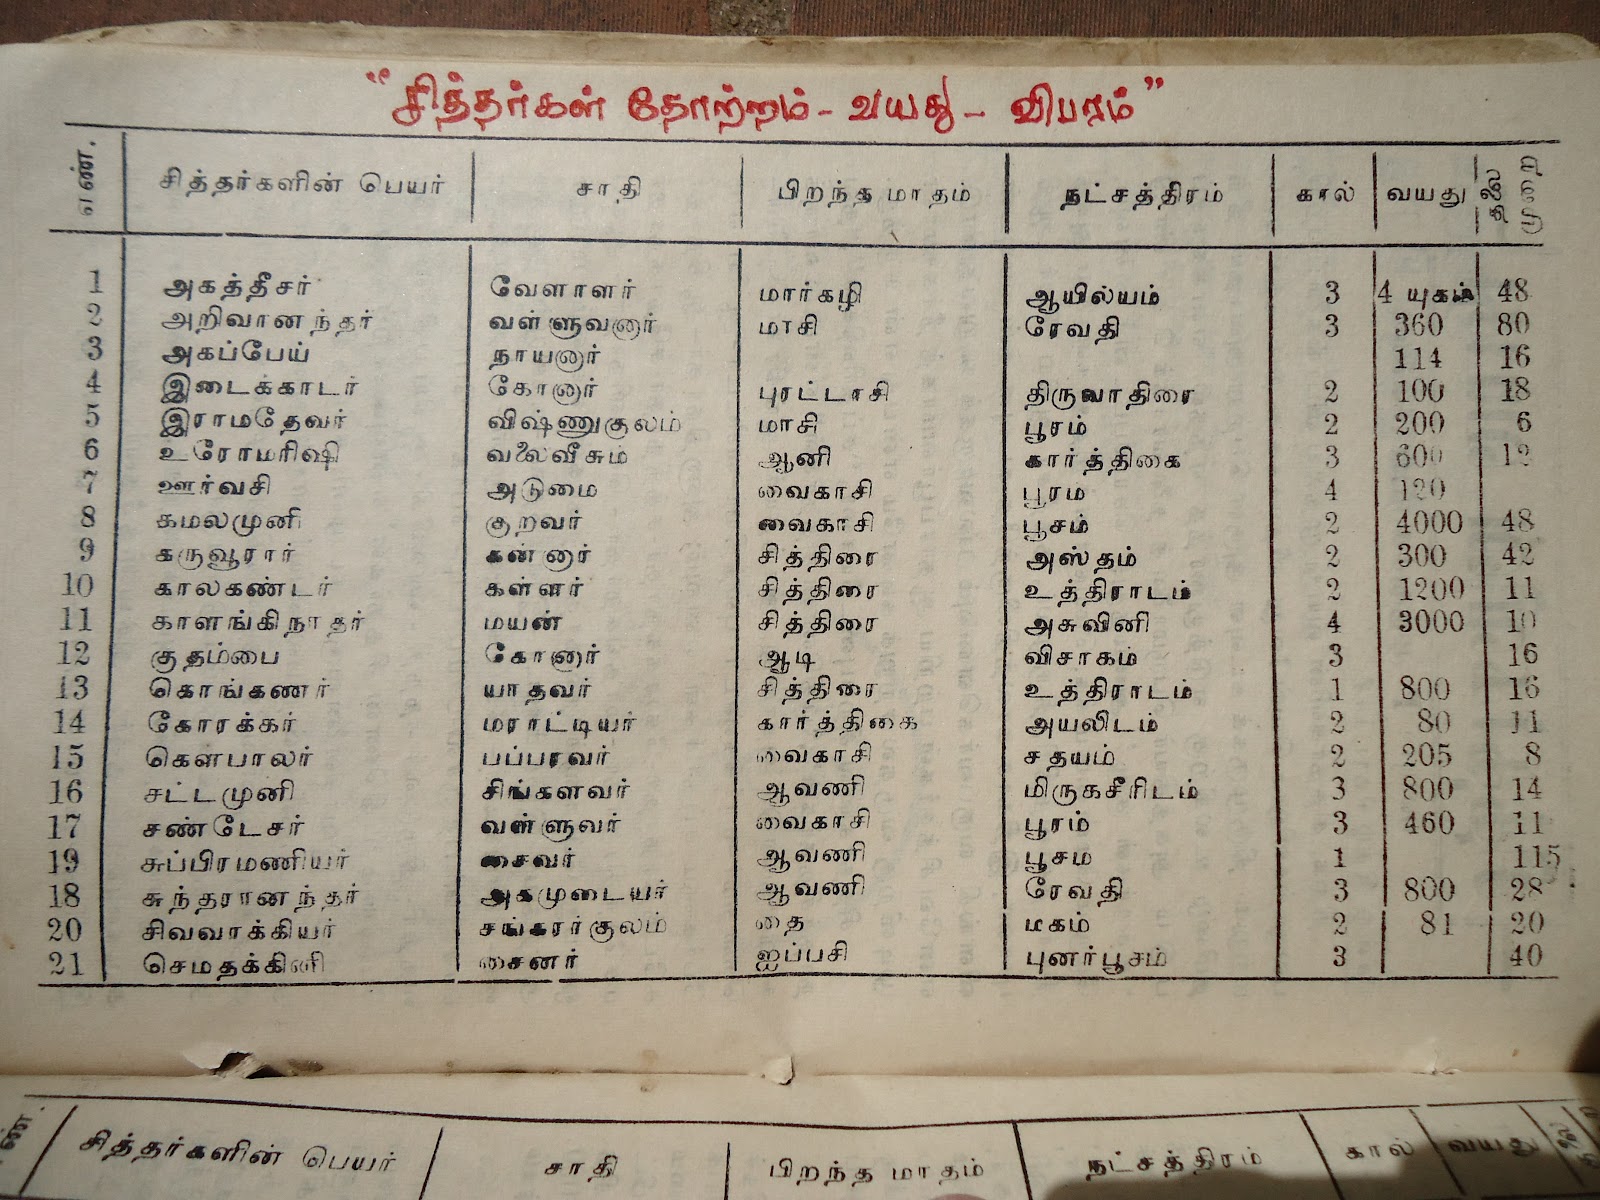 "சித்தர்கள் தோற்றம் - வயது - விபரம்"
எண். சித்தர்களின் பெயர் சாதி பிறந்த மாதம் நட்சத்திரம் கால் வயது தலை முறை
1 அகத்தீசர் வேளாளர் மார்கழி ஆயில்யம் 3 4 யுகம் 48
2 அறிவானந்தர் வள்ளுவனார் மாசி ரேவதி 3 360 80
3 அகப்பேய் நாயனார் 114 16
4 இடைக்காடர் கோனார் புரட்டாசி திருவாதிரை 2 100 18
5 இராமதேவர் விஷ்ணுகுலம் மாசி பூரம் 2 200 6
6 உரோமரிஷி வலைவீசும் ஆனி கார்த்திகை 3 600 12
7 ஊர்வசி அடுமை வைகாசி பூரம 4 120
8 கமலமுனி குறவர் வைகாசி பூசம் 2 4000 48
9 கருவூரார் கன்னார் சித்திரை அஸ்தம் 2 300 42
10 காலகண்டர் கள்ளர் சித்திரை உத்திராடம் 2 1200 11
11 காளங்கிநாதர் மயன் சித்திரை அசுவினி 4 3000 10
12 குதம்பை கோனார் ஆடி விசாகம் 3 16
13 கொங்கணர் யாதவர் சித்திரை உத்திராடம் 1 800 16
14 கோரக்கர் மராட்டியர் கார்த்திகை அயலிடம் 2 80 11
15 கௌபாலர் பப்பரவர் வைகாசி சதயம் 2 205 8
16 சட்டமுனி சிங்களவர் ஆவணி மிருகசீரிடம் 3 800 14
17 சண்டேசர் வள்ளுவர் வைகாசி பூரம் 3 460 11
19 சுப்பிரமணியர் சைவர் ஆவணி பூசம 1 115
18 சுந்தரானந்தர் அகமுடையர் ஆவணி ரேவதி 3 800 28
20 சிவவாக்கியர் சங்கரர்குலம் தை மகம் 2 81 20
21 செமதக்கினி சைனர் ஐப்பசி புனர்பூசம் 3 40
ண். சித்தர்களின் பெயர் சாதி பிறந்த மாதம் நட்சத்திரம் கால் வயது